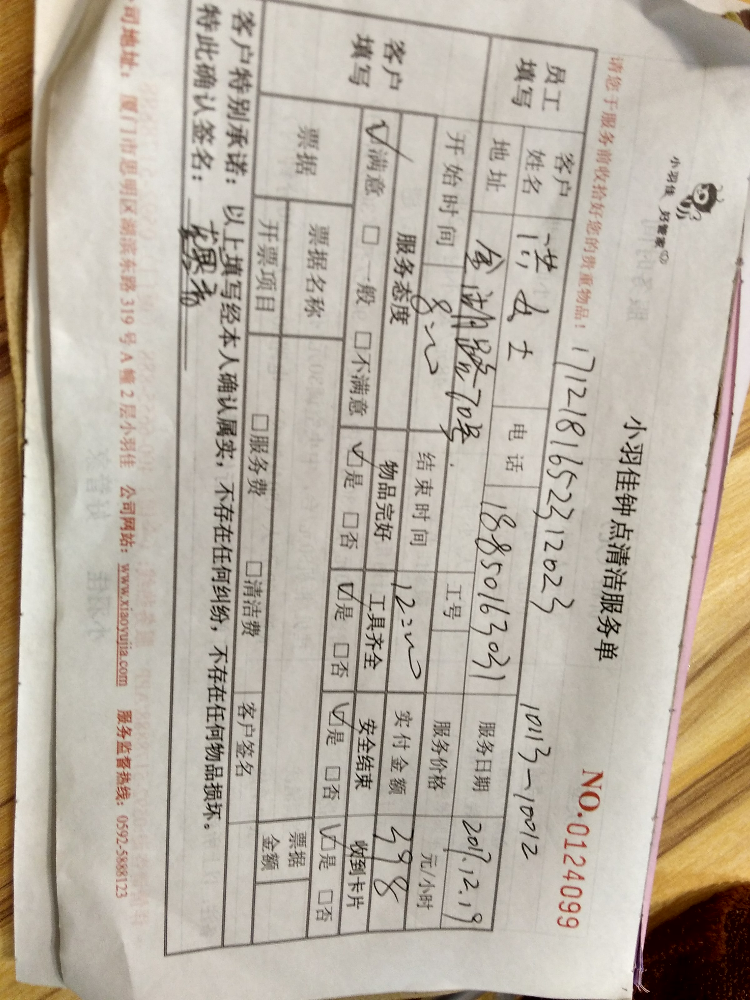 小羽佳 好管家
小羽佳钟点清洁服务单
NO.0124099
请您于服务前收拾好您的贵重物品！ 1712181652312023 10113-10012
员工填写 客户姓名 洪女士 电话 18850163031 服务日期 2017.12.19
地址 金湖路70号 工号 服务价格 元/小时
客户填写 开始时间 8:00 结束时间 12:00 实付金额 398
服务态度 物品完好 工具齐全 安全结束 收到卡片
☑满意 □一般 □不满意 ☑是 □否 ☑是 □否 ☑是 □否 ☑是 □否
票据 票据名称 票据金额
开票项目 □服务费 □清洁费 客户签名
客户特别承诺：以上填写经本人确认属实，不存在任何纠纷，不存在任何物品损坏。
特此确认签名：
公司地址：厦门市思明区湖滨东路 319 号 A 幢 2 层小羽佳 公司网站：www.xiaoyujia.com 服务监督热线：0592-5888123